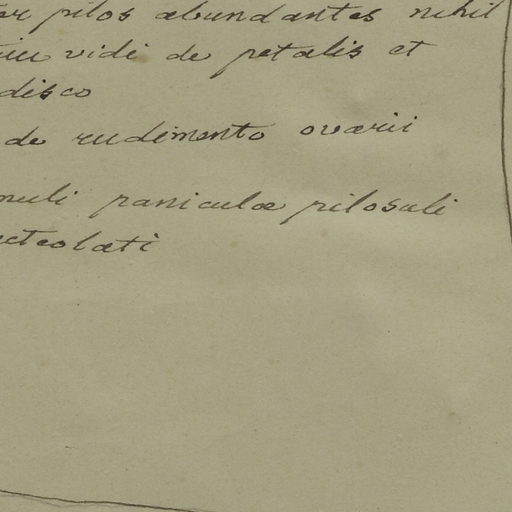 pilos abundantes nihil
vidi de petalis et
disco
de rudimento ovarii
paniculæ pilosuli